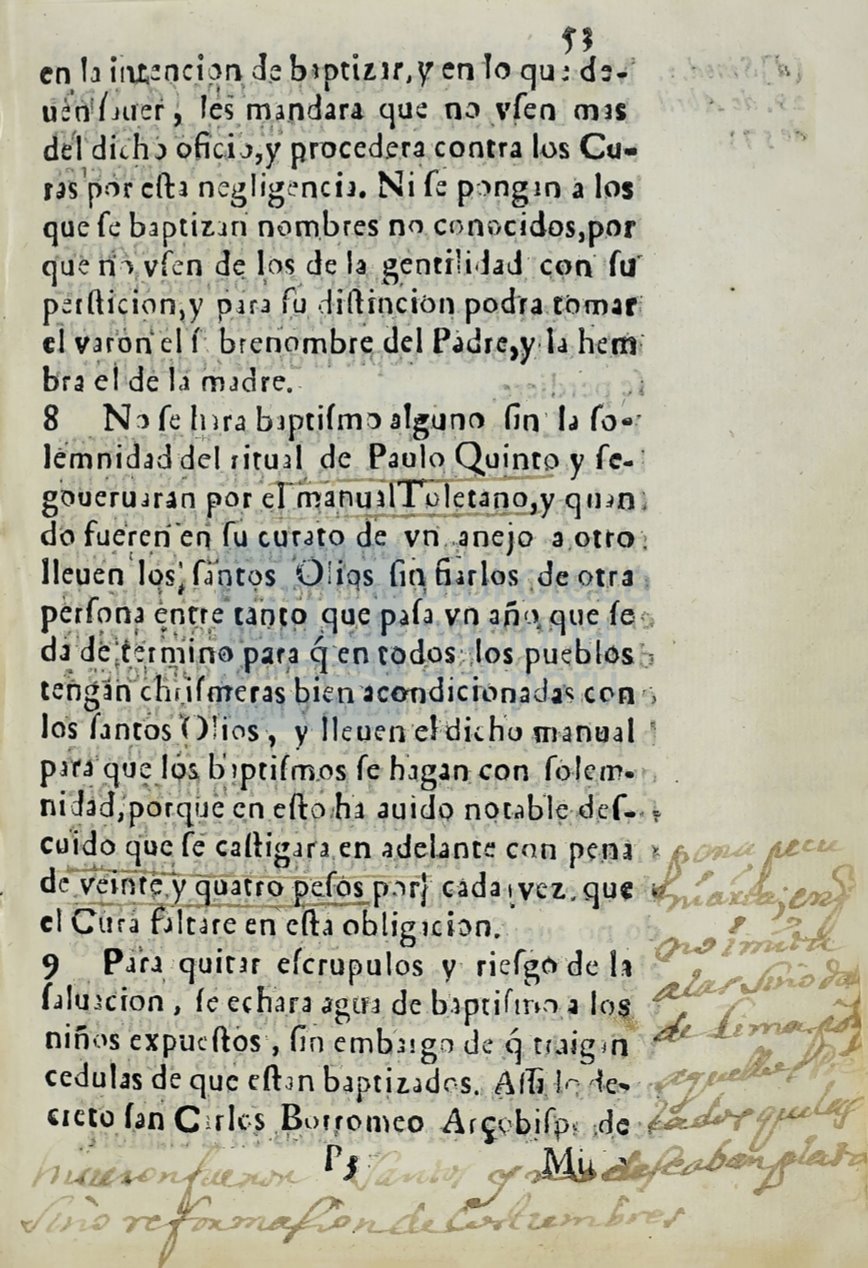 53
en la intencion de baptizar, y en lo que de-
uen hazer, les mandara que no vſen mas
del dicho oficio, y procedera contra los Cu-
ras por eſta negligencia. Ni ſe pongan a los
que ſe baptizan nombres no conocidos, por
que no vſen de los de la gentilidad con ſu
perſticion, y para ſu diſtincion podra tomar
el varon el ſ brenombre del Padre, y la hem
bra el de la madre.
8 No ſe hara baptiſmo alguno ſin la ſo-
lemnidad del ritual de Paulo Quinto y ſe-
gouernaran por el manual Toletano, y quan
do fueren en ſu curato de vn anejo a otro
lleuen los ſantos Olios ſin fiarlos de otra
perſona entre tanto que paſa vn año, que ſe
da de termino para q́ en todos los pueblos
tengan chriſmeras bien acondicionadas con
los ſantos Olios, y lleuen el dicho manual
para que los baptiſmos ſe hagan con ſolem-
nidad, porque en eſto ha auido notable deſ-
cuido que ſe caſtigara en adelante con pena
de veinte y quatro peſos por cada vez que
el Cura faltare en eſta obligacion.
9 Para quitar eſcrupulos y rieſgo de la
ſaluacion, ſe echara agua de baptiſmo a los
niños expueſtos, ſin embargo de q́ traigan
cedulas de que eſtan baptizados. Aſſi lo de-
creto ſan Carlos Borromeo Arçobiſpo de
P3 Mi
pena pecu
niaria; en q
no imita
a las Sino da
de Lima
aquellos Pre
lados que las
hicieron fueron Santos y no deseaban plata
Sino reformasion de Costumbres